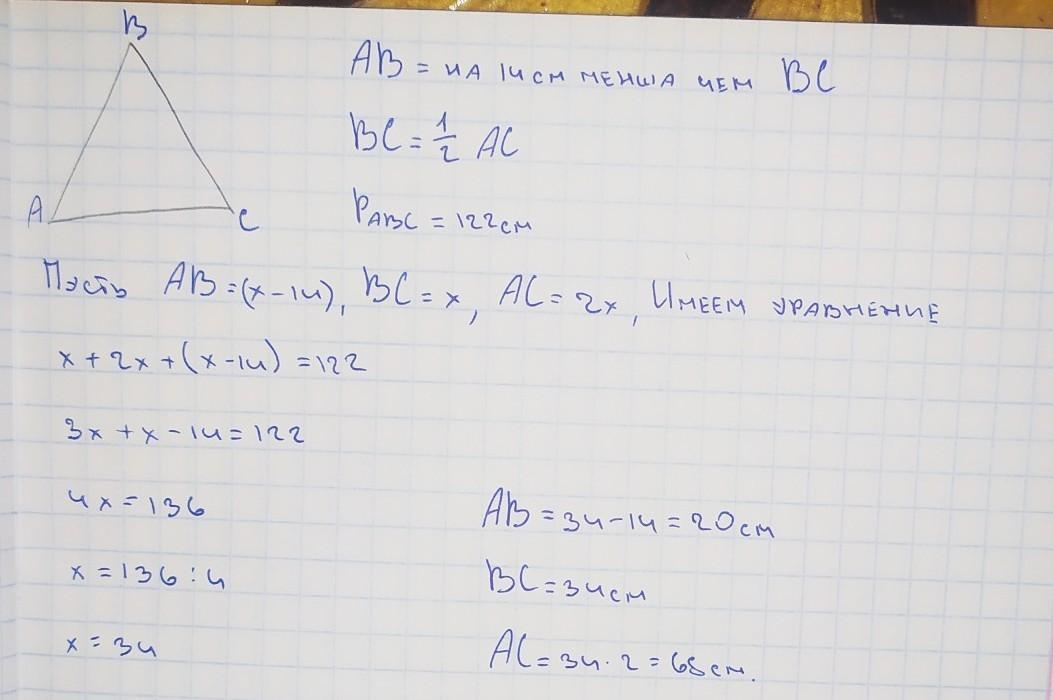 B
A
C
AB = на 14см менша чем BC
BC = 1/2 AC
P ABC = 122см
Пусть AB = (x-14), BC = x, AC = 2x, Имеем уравнение
x + 2x + (x-14) = 122
3x + x - 14 = 122
4x = 136
x = 136 : 4
x = 34
AB = 34 - 14 = 20см
BC = 34см
AC = 34 · 2 = 68см.